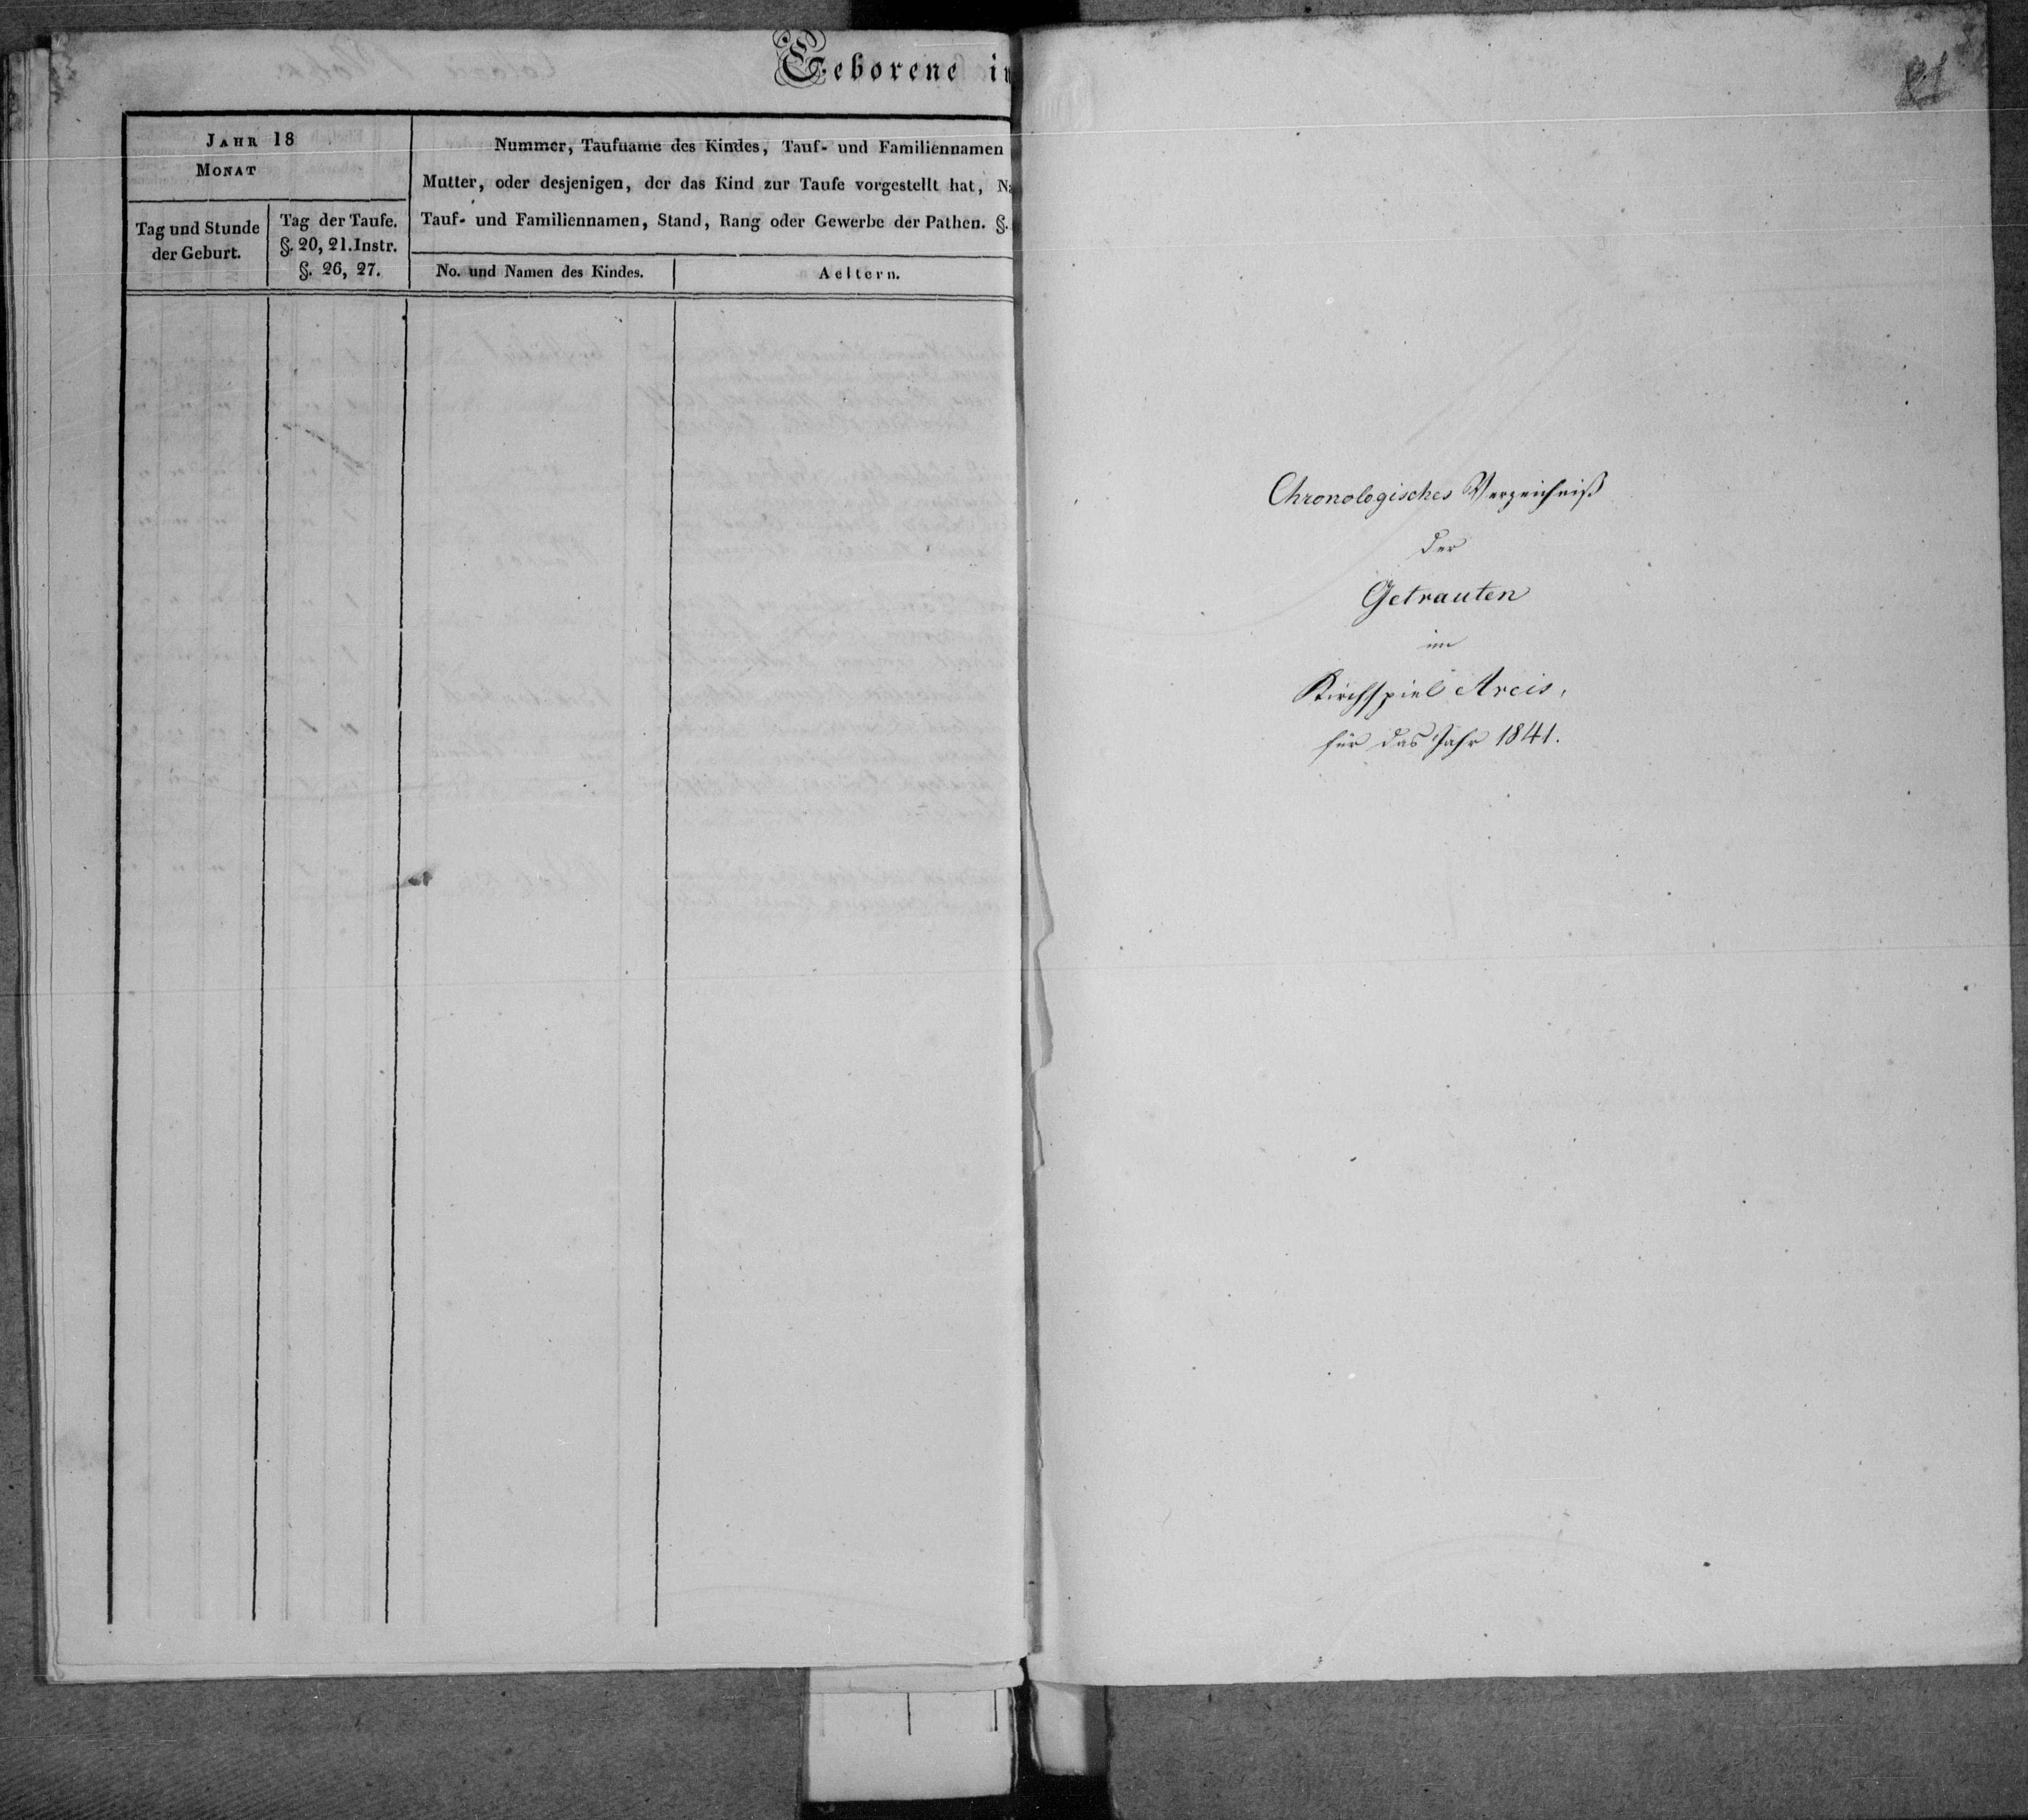 Geborene in
JAHR 18
MONAT
Tag und Stunde
der Geburt.
Tag der Taufe.
§. 20, 21. Instr.
§. 26, 27.
Nummer, Taufname des Kindes, Tauf- und Familiennamen
Mutter, oder desjenigen, der das Kind zur Taufe vorgestellt hat, Na
Tauf- und Familiennamen, Stand, Rang oder Gewerbe der Pathen. §.
No. und Namen des Kindes.
Aeltern.
Chronologisches Verzeichniß
der
Getrauten
im
Kirchspiel Arcis,
für das Jahr 1841.